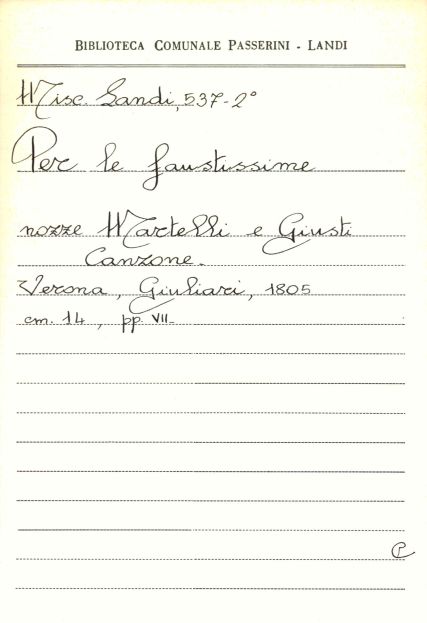 BIBLIOTECA COMUNALE PASSERINI - LANDI
Misc. Landi, 537-2°
Per le faustissime
nozze Martelli e Giusti
Canzone.
Verona, Giuliari, 1805
cm. 14, pp. VII.
P